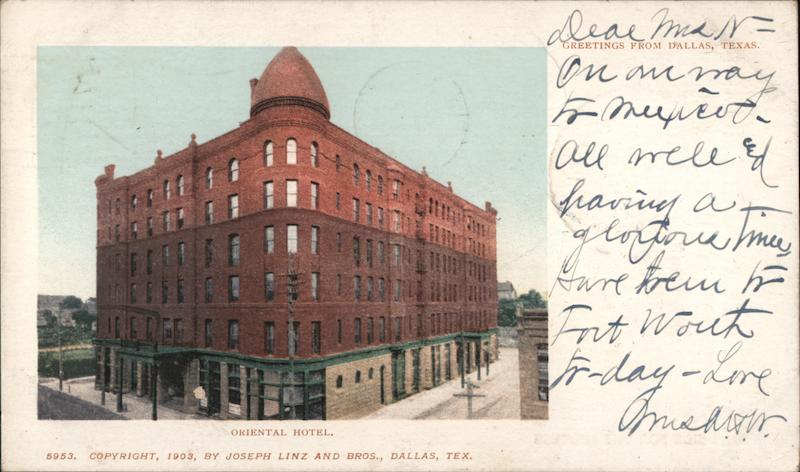 GREETINGS FROM DALLAS, TEXAS.
Dear Mrs N-
On our way
to Mexico-
All well &
having a
glorious time,
have been to
Fort Worth
to-day - Love
ORIENTAL HOTEL.
5953. COPYRIGHT, 1903, BY JOSEPH LINZ AND BROS., DALLAS, TEX.